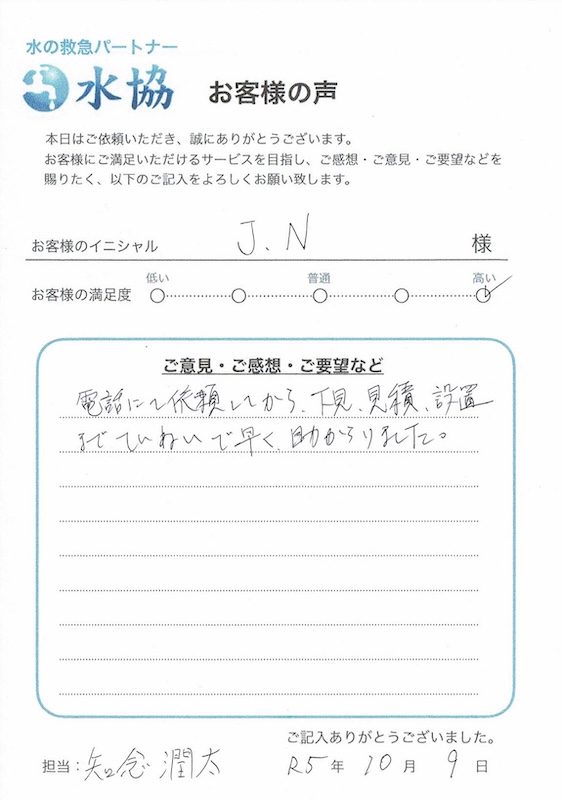 水の救急パートナー
水協 お客様の声
本日はご依頼いただき、誠にありがとうございます。
お客様にご満足いただけるサービスを目指し、ご感想・ご意見・ご要望などを
賜りたく、以下のご記入をよろしくお願い致します。
お客様のイニシャル J.N 様
低い 普通 高い
お客様の満足度
ご意見・ご感想・ご要望など
電話にて依頼してから、下見、見積、設置
までていねいで早く、助かりました。
ご記入ありがとうございました。
担当：知念 潤太 R5年 10月 9日